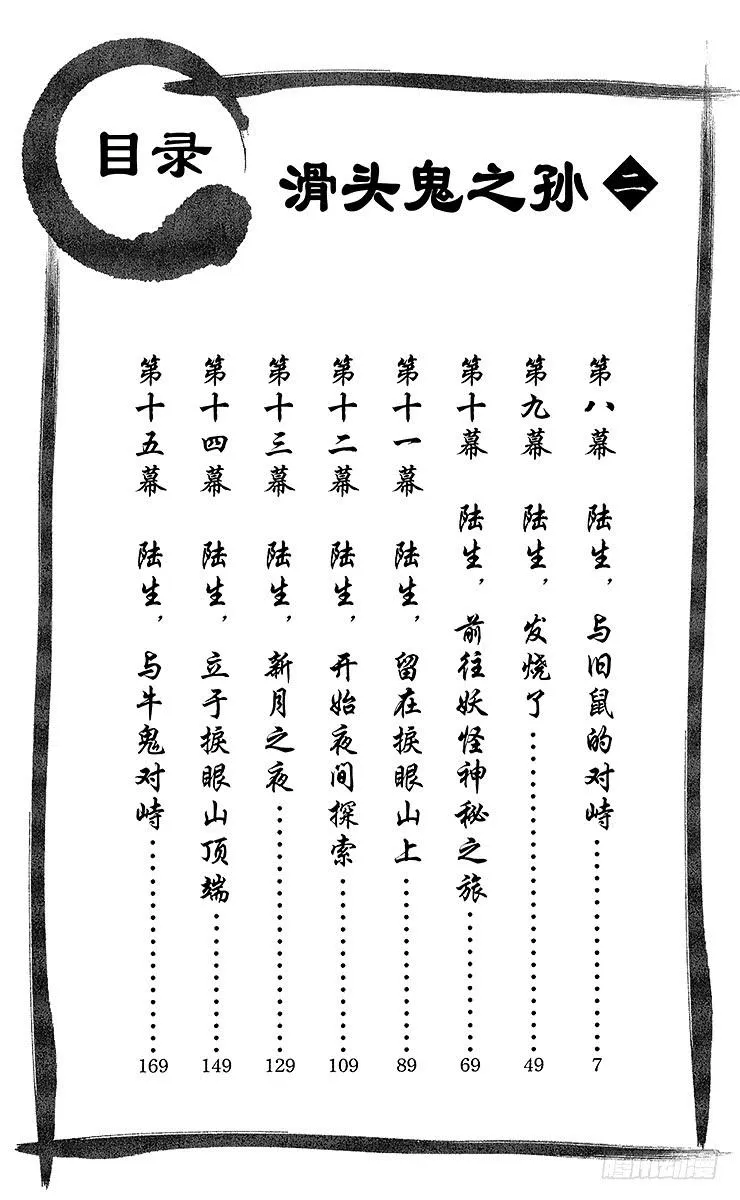 目录
滑头鬼之孙 二
第八幕 陆生，与旧鼠的对峙……7
第九幕 陆生，发烧了……49
第十幕 陆生，前往妖怪神秘之旅……69
第十一幕 陆生，留在捩眼山上……89
第十二幕 陆生，开始夜间探索……109
第十三幕 陆生，新月之夜……129
第十四幕 陆生，立于捩眼山顶端……149
第十五幕 陆生，与牛鬼对峙……169
腾讯动漫